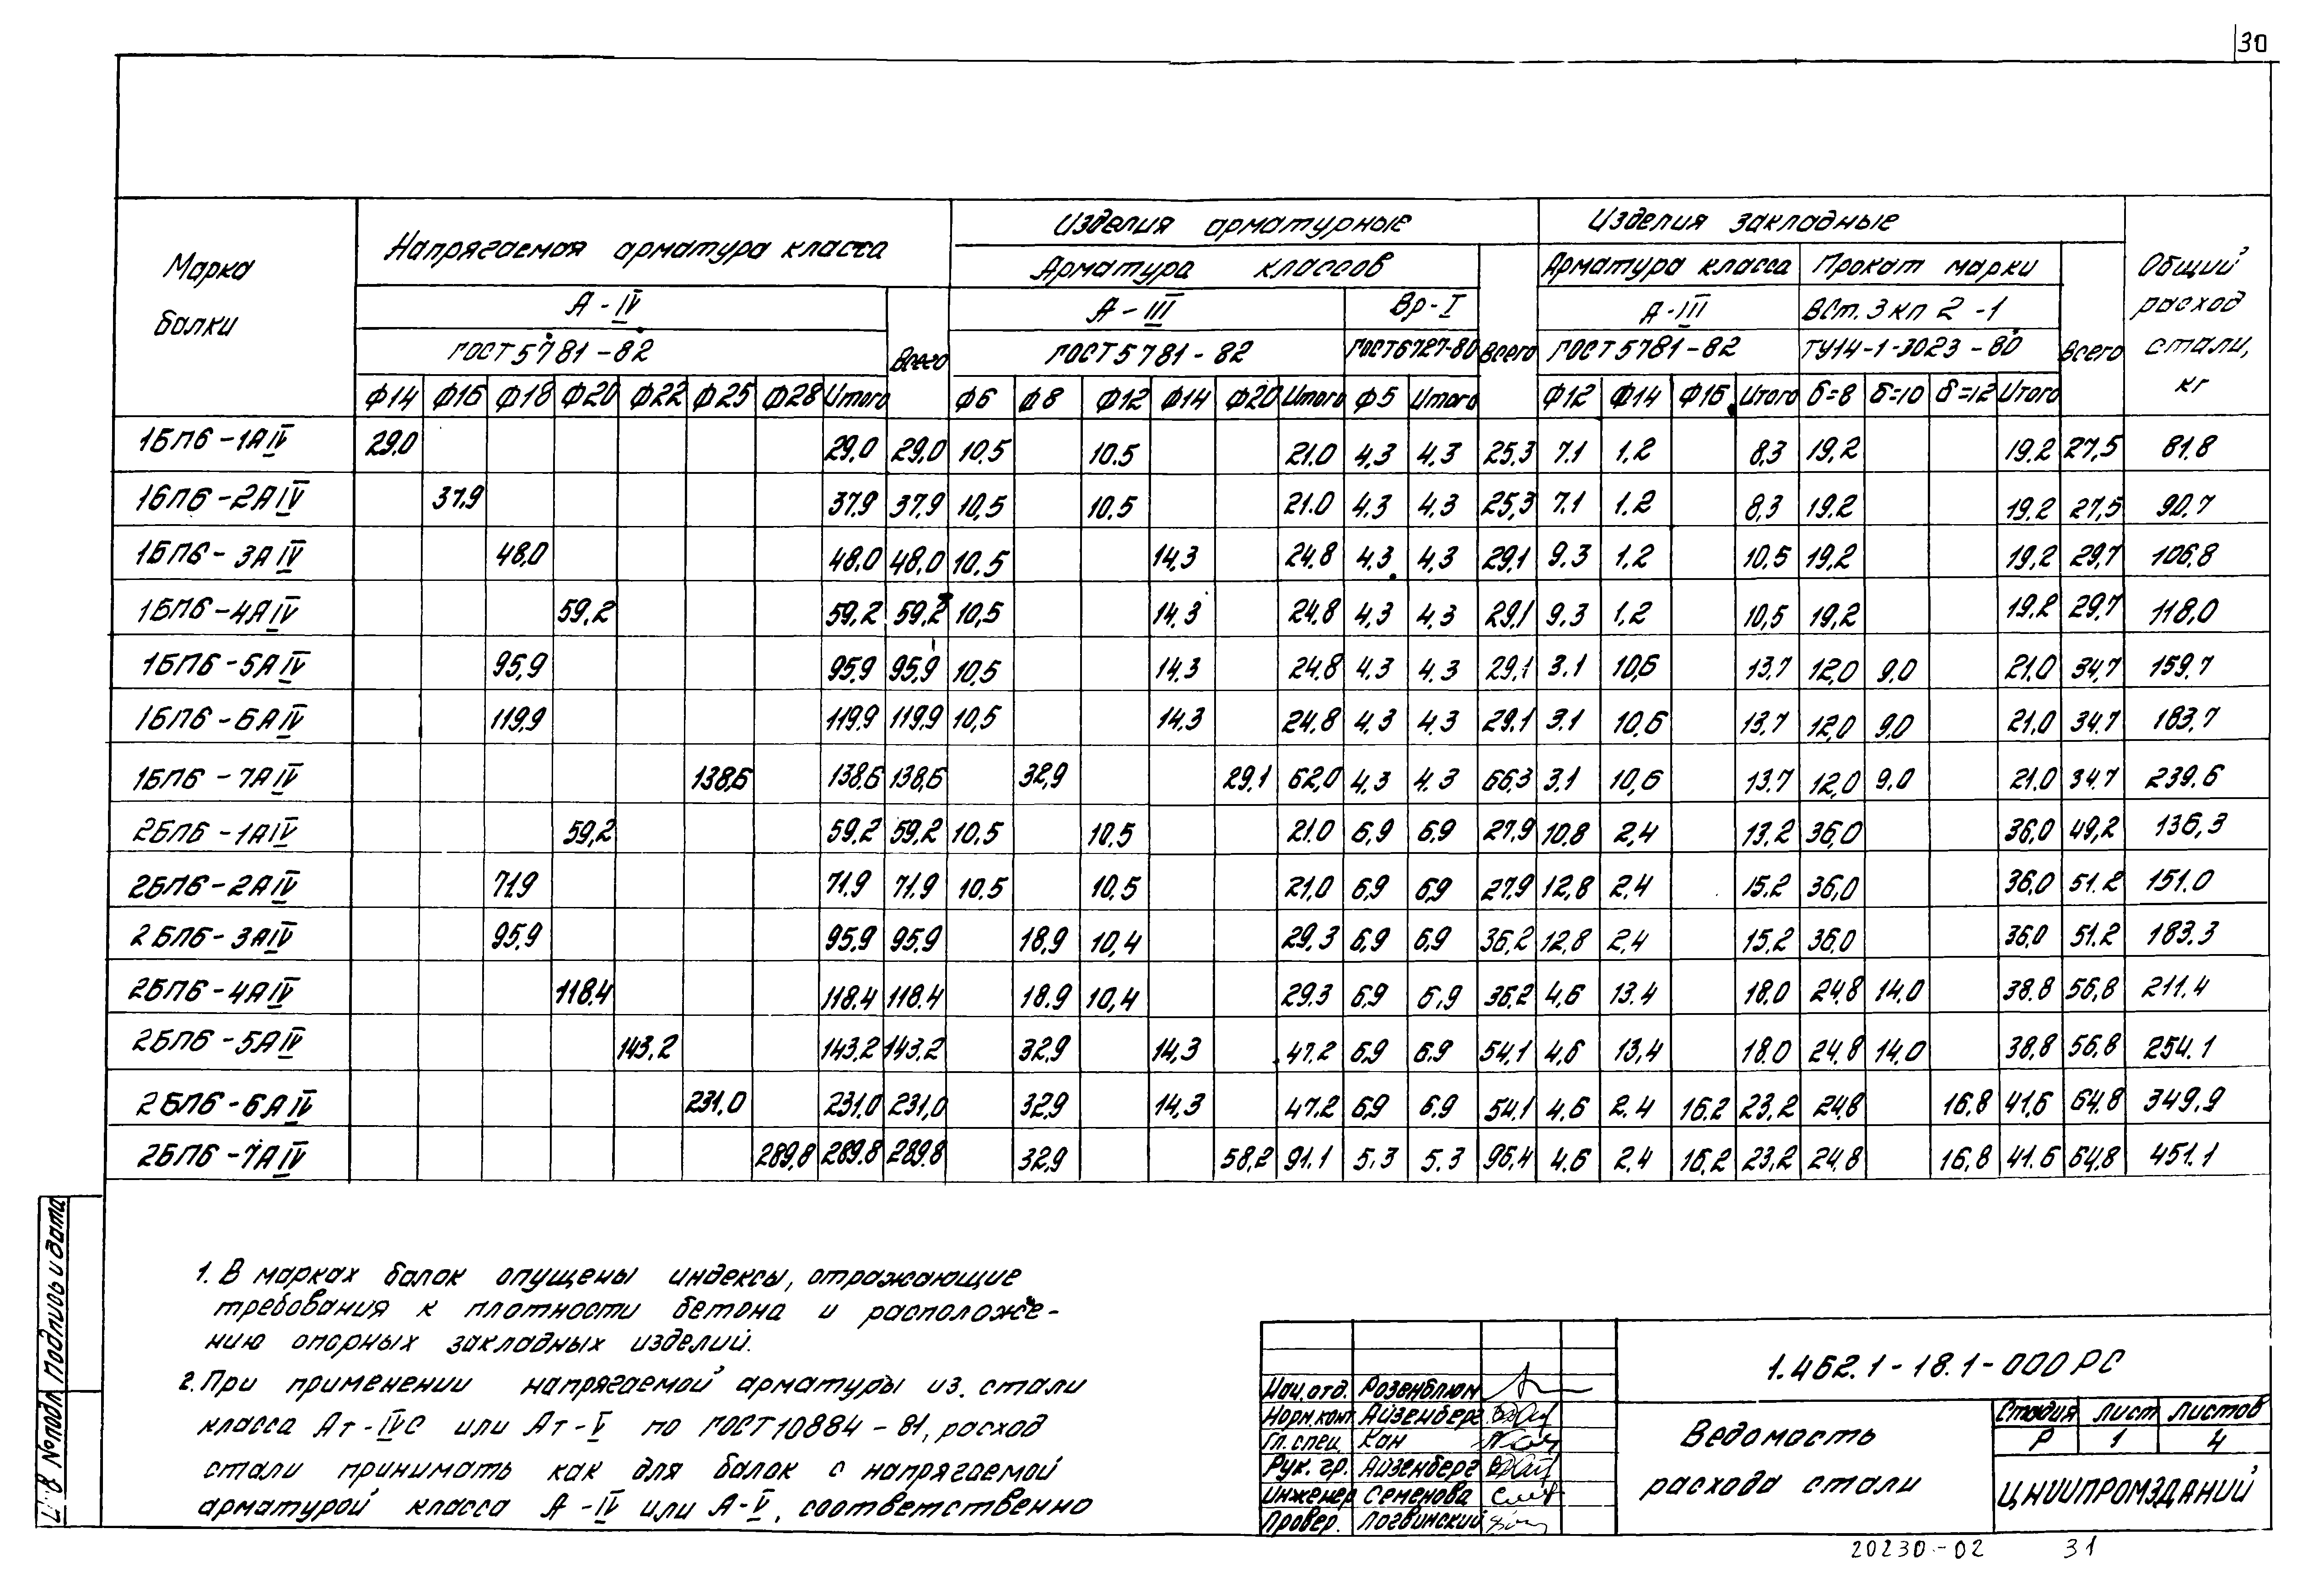 30
Марка балки
Напрягаемая арматура класса
Изделия арматурные
Изделия закладные
Общий расход стали, кг
Арматура классов
Арматура класса
Прокат марки
А-IV
Всего
А-III
Вр-I
Всего
А-III
ВСт.3кп 2-1
Всего
ГОСТ 5781-82
ГОСТ 5781-82
ГОСТ 6727-80
ГОСТ 5781-82
ТУ14-1-3023-80
Ф14 Ф16 Ф18 Ф20 Ф22 Ф25 Ф28 Итого Ф6 Ф8 Ф12 Ф14 Ф20 Итого Ф5 Итого Ф12 Ф14 Ф16 Итого δ=8 δ=10 δ=12 Итого
1БП6-1АIV 29.0 29,0 29,0 10.5 10.5 21.0 4,3 4.3 25,3 7.1 1.2 8,3 19,2 19.2 27,5 81.8
1БП6-2АIV 37,9 37,9 37,9 10,5 10.5 21.0 4.3 4.3 25,3 7.1 1.2 8,3 19.2 19,2 27,5 90.7
1БП6-3АIV 48,0 48.0 48,0 10.5 14,3 24.8 4,3 4,3 29,1 9.3 1.2 10,5 19,2 19,2 29,7 106,8
1БП6-4АIV 59,2 59,2 59,2 10,5 14.3 24.8 4,3 4.3 29,1 9.3 1.2 10,5 19,2 19,2 29,7 118,0
1БП6-5АIV 95,9 95,9 95,9 10,5 14.3 24.8 4.3 4.3 29,1 3.1 10,6 13.7 12,0 9.0 21.0 34,7 159.7
1БП6-6АIV 119,9 119.9 119.9 10,5 14.3 24.8 4,3 4.3 29.1 3.1 10.6 13.7 12,0 9,0 21,0 34.7 183.7
1БП6-7АIV 138,6 138,6 138,6 32,9 29,1 62,0 4.3 4.3 66,3 3.1 10,6 13.7 12,0 9.0 21.0 34.7 239.6
2БП6-1АIV 59,2 59.2 59,2 10.5 10.5 21.0 6,9 6,9 27,9 10,8 2,4 13,2 36,0 36,0 49,2 136,3
2БП6-2АIV 71,9 71.9 71.9 10.5 10.5 21,0 6,9 6,9 27,9 12,8 2.4 15.2 36,0 36,0 51.2 151.0
2БП6-3АIV 95,9 95,9 95,9 18,9 10,4 29,3 6,9 6,9 36,2 12,8 2,4 15,2 36,0 36,0 51.2 183.3
2БП6-4АIV 118.4 118.4 118.4 18.9 10,4 29.3 6,9 6,9 36,2 4,6 13.4 18.0 24,8 14,0 38.8 56,8 211.4
2БП6-5АIV 143,2 143,2 143,2 32,9 14,3 47.2 6,9 6.9 54,1 4,6 13,4 18.0 24,8 14,0 38,8 56,8 254.1
2БП6-6АIV 231,0 231,0 231,0 32,9 14,3 47.2 6,9 6.9 54,1 4.6 2.4 16.2 23,2 24,8 16,8 41,6 64,8 349,9
2БП6-7АIV 289,8 289.8 289.8 32,9 58,2 91.1 5.3 5.3 96,4 4.6 2.4 16,2 23,2 24,8 16,8 41.6 64,8 451.1
1. В марках балок опущены индексы, отражающие
требования к плотности бетона и расположе-
нию опорных закладных изделий.
2. При применении напрягаемой арматуры из стали
класса Ат-IVС или Ат-V по ГОСТ10884-81, расход
стали принимать как для балок с напрягаемой
арматурой класса А-IV или А-V, соответственно
Подпись и дата
№ подл
Нач.отд. Розенблюм
Норм.конт. Айзенберг
Гл.спец. Кан
Рук. гр. Айзенберг
Инженер Семенова
Провер. Логвинский
1.462.1-18.1-000 РС
Ведомость
расхода стали
Стадия Лист Листов
Р 1 4
ЦНИИПРОМЗДАНИЙ
20230-02 31